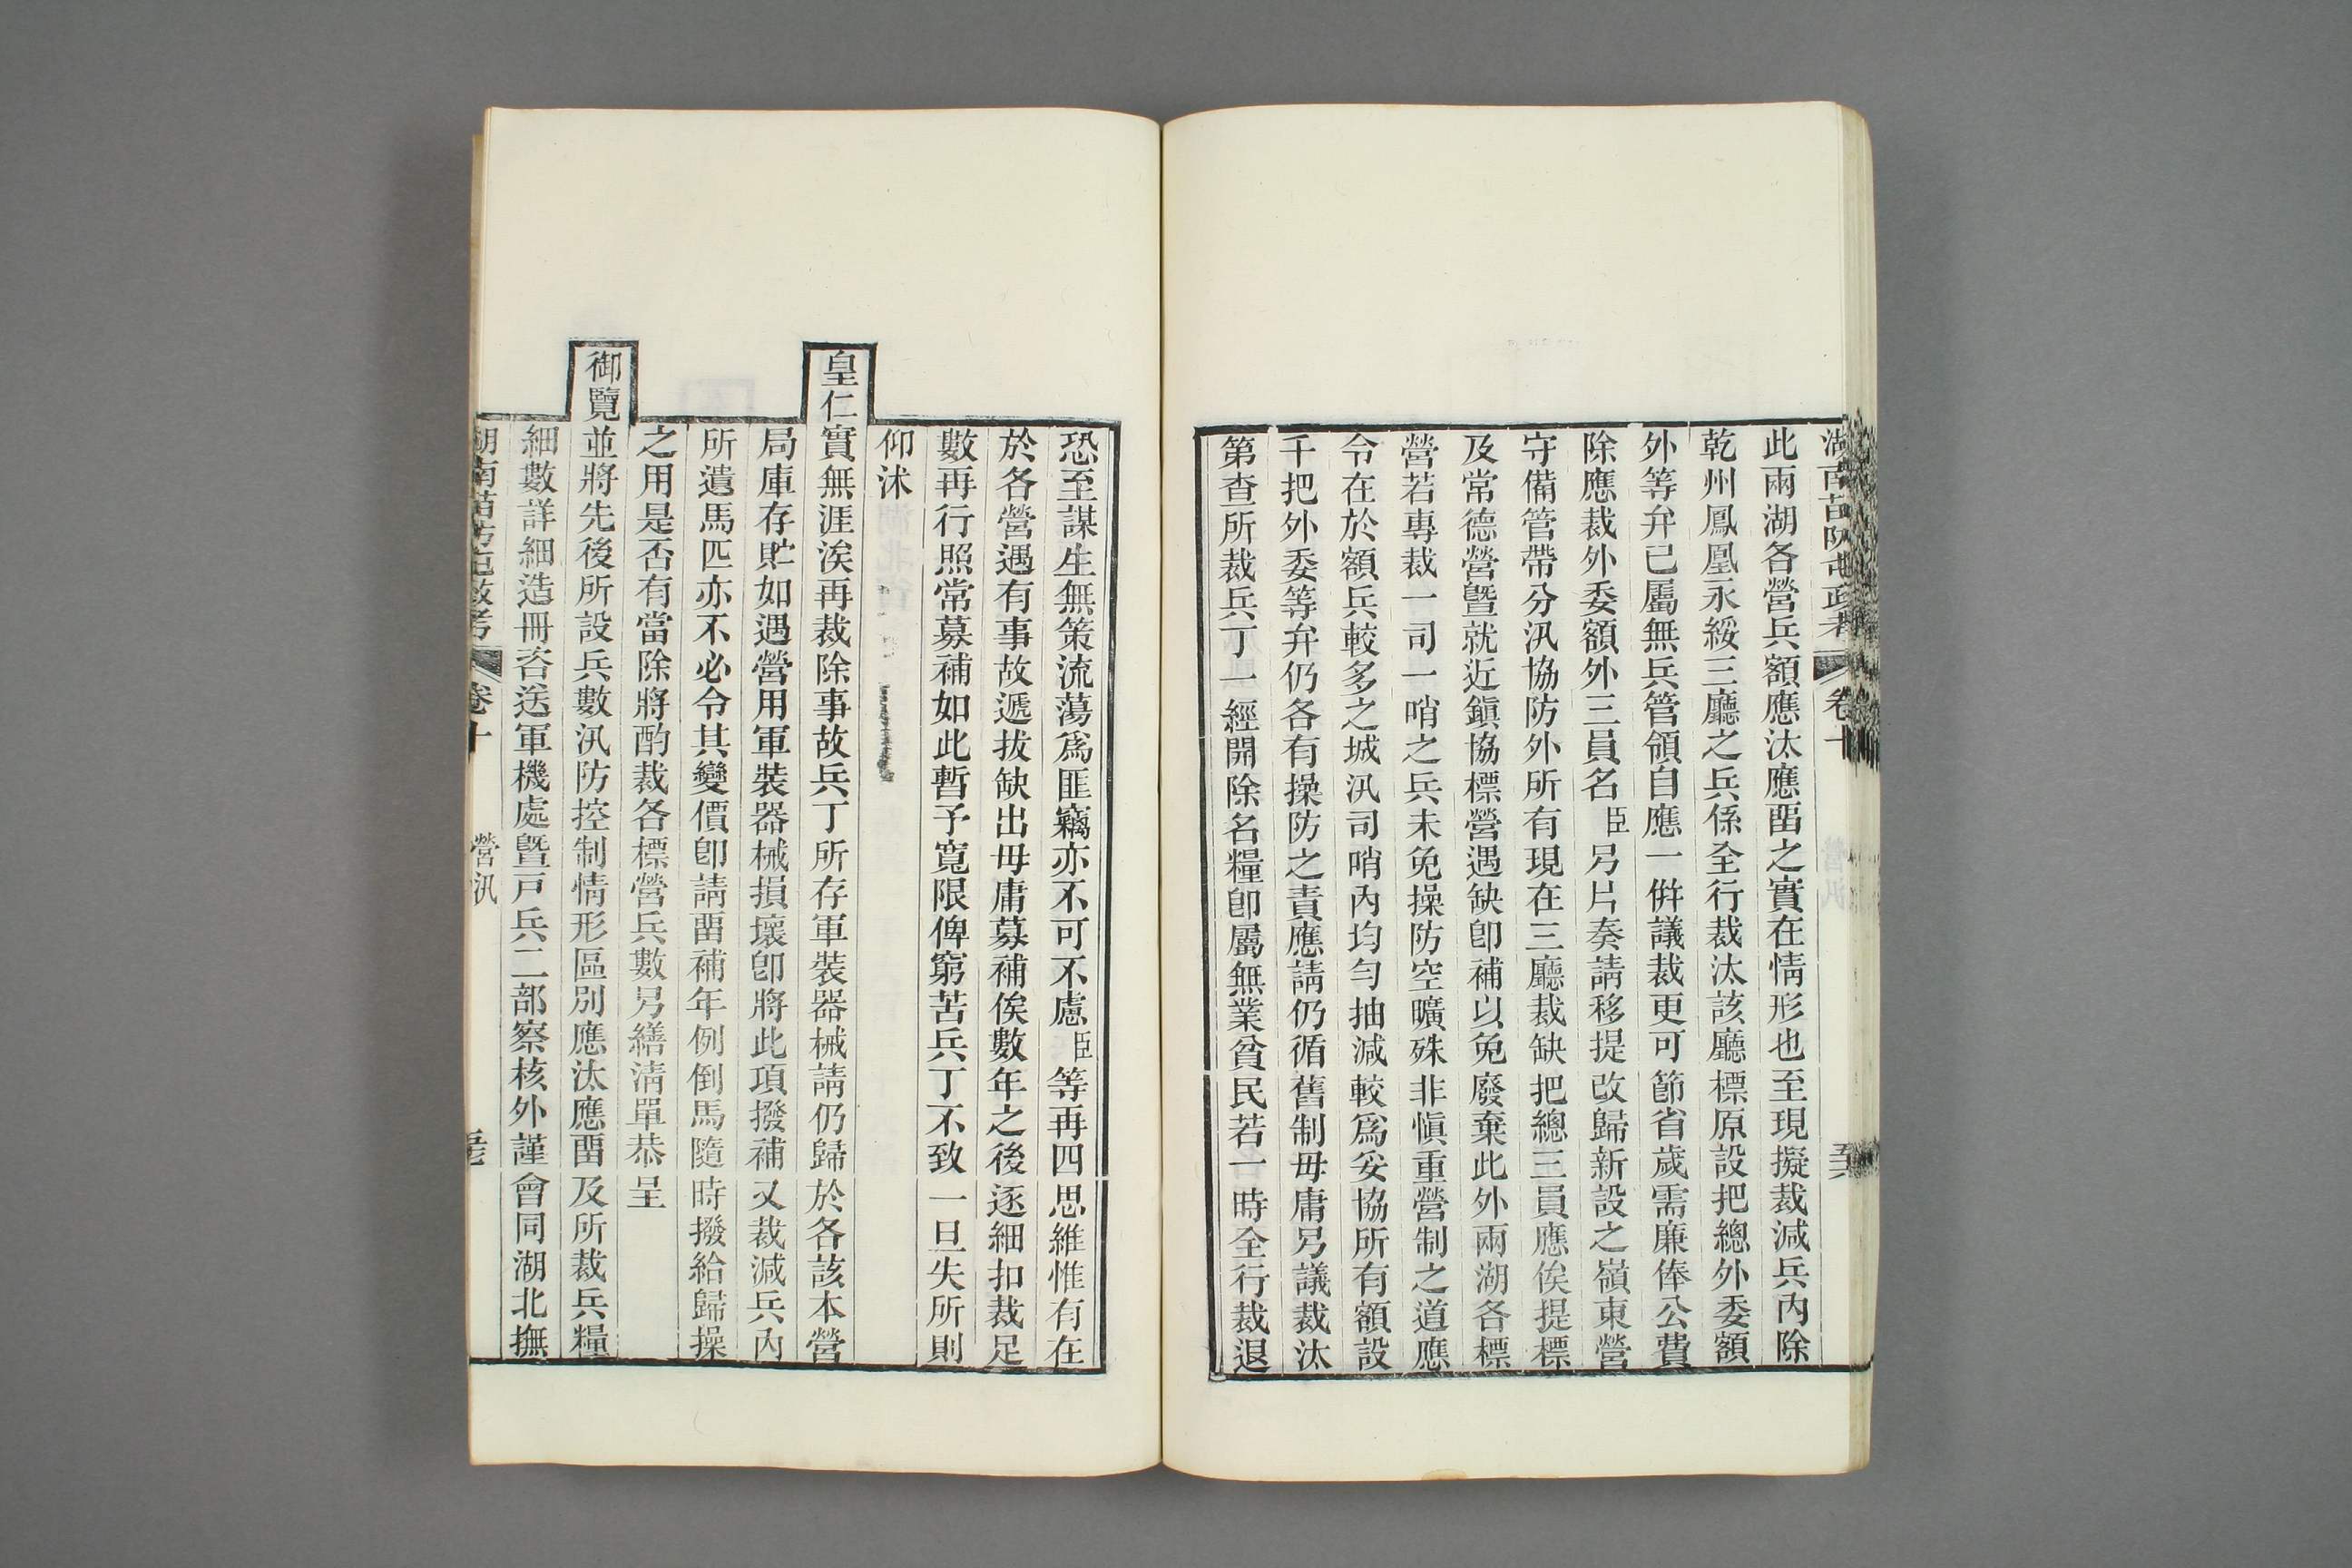 湖南苗防屯政考 卷十
此兩湖各營兵額應汰應畱之實在情形也至現擬裁減兵內除
乾州鳳凰永綏三廳之兵係全行裁汰該廳標原設把總外委額
外等弁已屬無兵管領自應一併議裁更可節省歲需廉俸公費
除應裁外委額外三員名臣另片奏請移提改歸新設之嶺東營
守備管帶分汛協防外所有現在三廳裁缺把總三員應俟提標
及常德營曁就近鎭協標營遇缺卽補以免廢棄此外兩湖各標
營若專裁一司一哨之兵未免操防空曠殊非愼重營制之道應
令在於額兵較多之城汛司哨內均勻抽減較爲妥協所有額設
千把外委等弁仍各有操防之責應請仍循舊制毋庸另議裁汰
第查所裁兵丁一經開除名糧卽屬無業貧民若一時全行裁退
恐至謀生無策流蕩爲匪竊亦不可不慮臣等再四思維惟有在
於各營遇有事故遞拔缺出毋庸募補俟數年之後逐細扣裁足
數再行照常募補如此暫予寬限俾窮苦兵丁不致一旦失所則
仰沐
皇仁實無涯涘再裁除事故兵丁所存軍裝器械請仍歸於各該本營
局庫存貯如遇營用軍裝器械損壞卽將此項撥補又裁減兵內
所遺馬匹亦不必令其變價卽請畱補年例倒馬隨時撥給歸操
之用是否有當除將酌裁各標營兵數另繕清單恭呈
御覽並將先後所設兵數汛防控制情形區別應汰應畱及所裁兵糧
細數詳細造冊咨送軍機處曁戸兵二部察核外謹會同湖北撫
湖南苗防屯政考 卷十 營汛